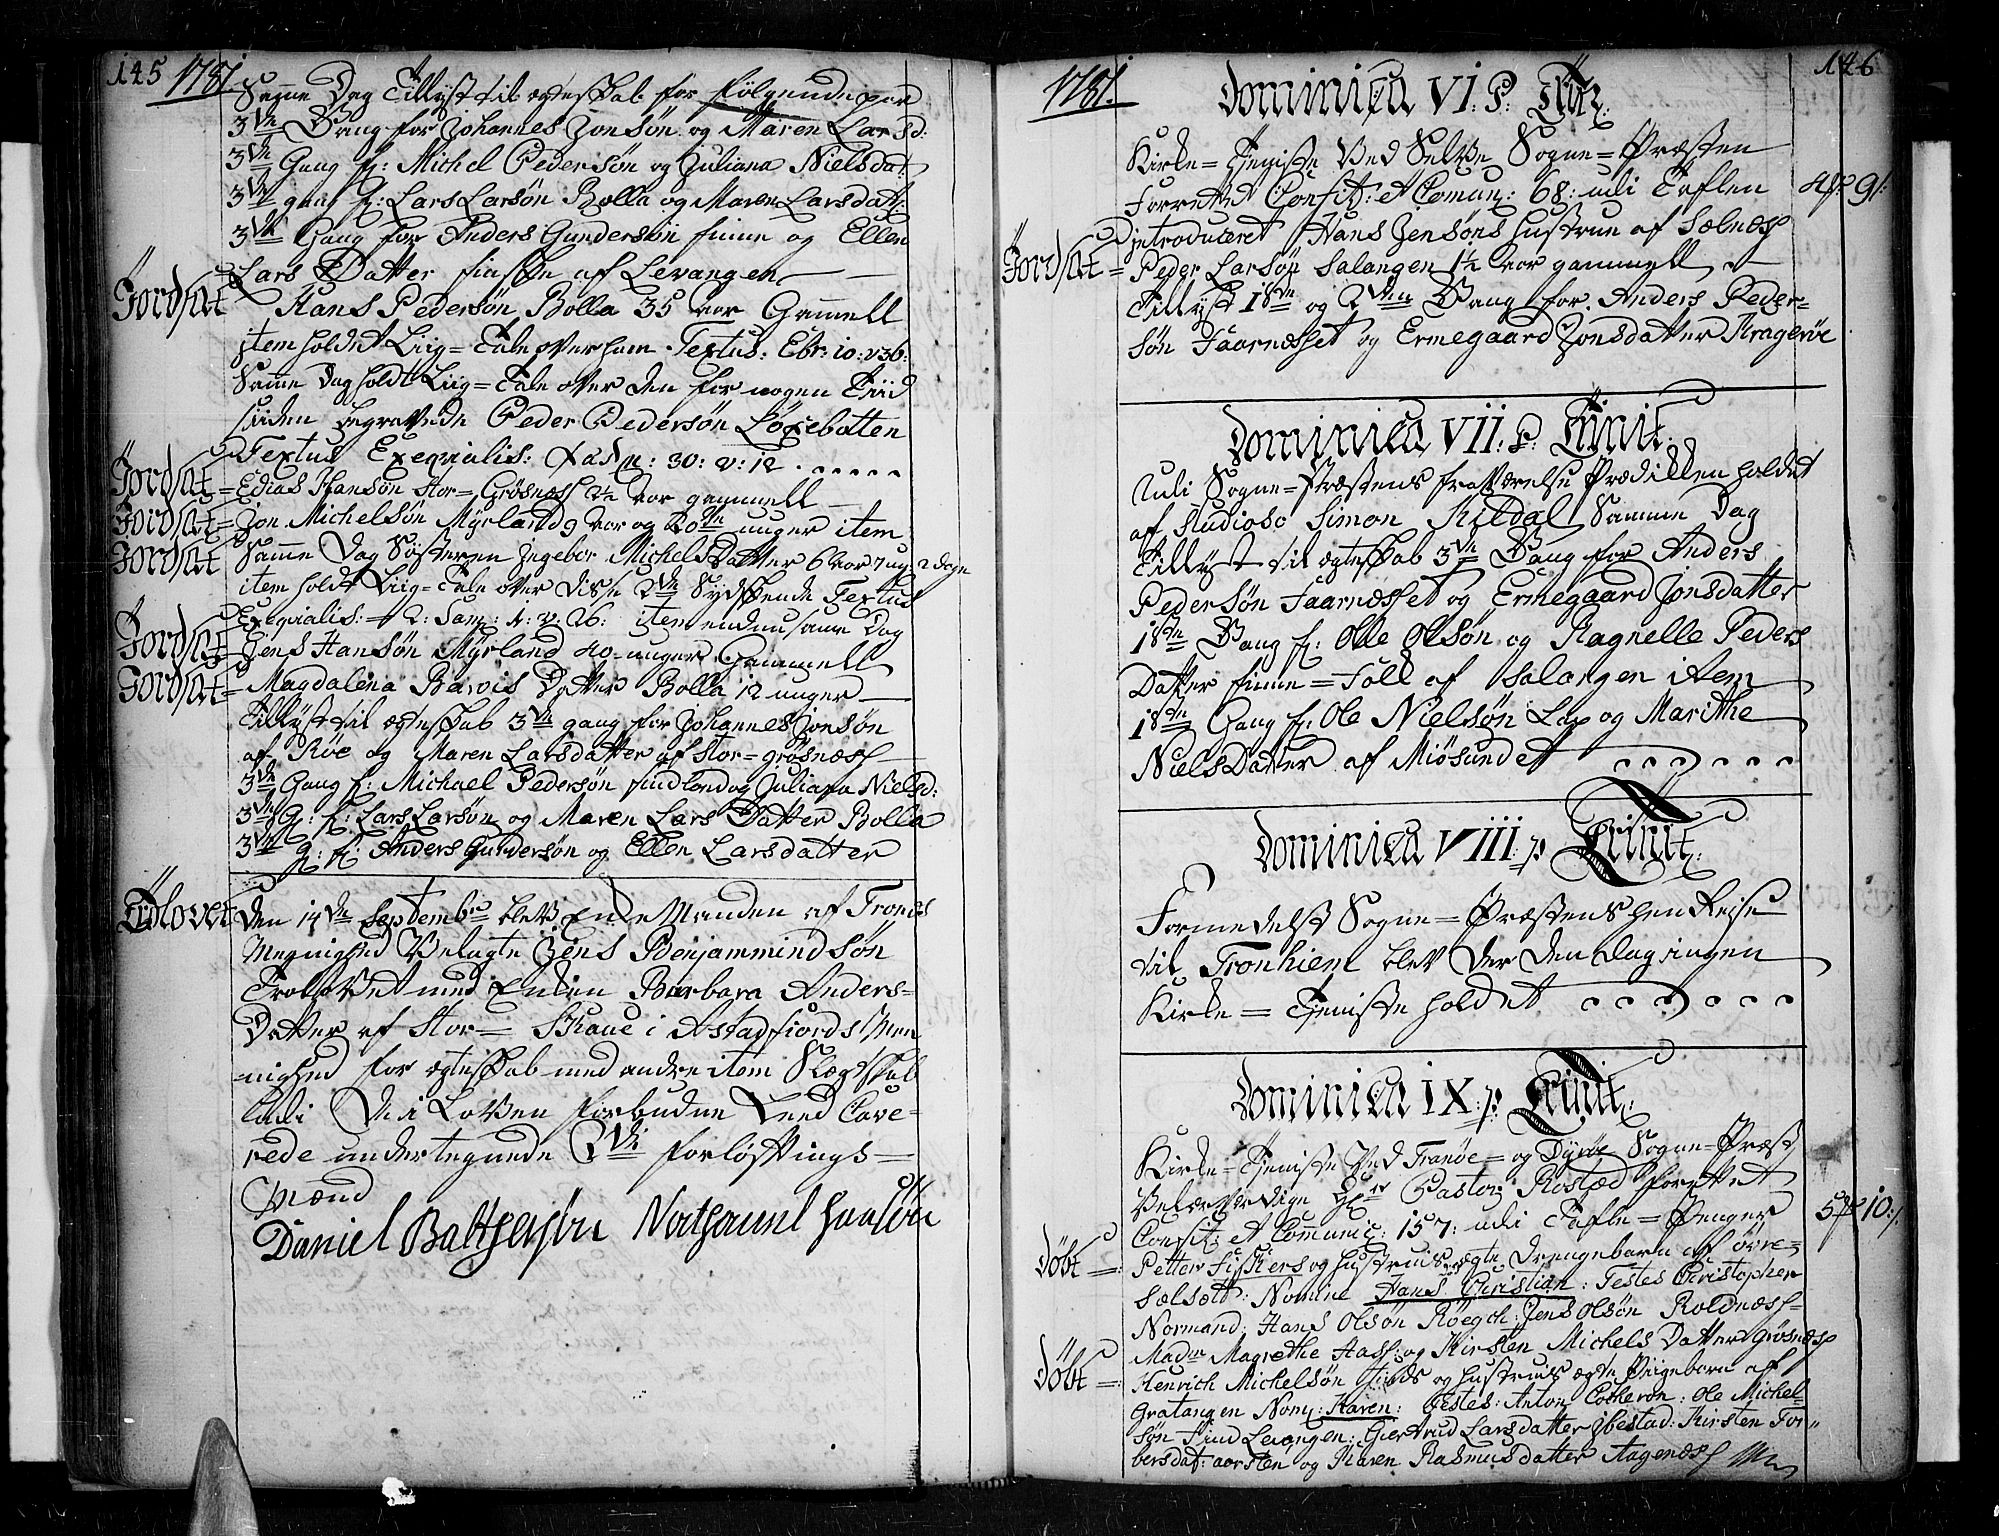 145 1781
Samme Dag Tillyst til ægteskab for følgende par
3die Gang for Johannes Jonsøn og Maren Larsd:
3die Gang f: Michel Pedersøn og Juliana Nielsdat
3die gang f: Lars Larsøn Bolla og Maren Larsdat:
3die Gang for Anders Gundersøn finne og Ellen
Lars Datter finske af Levangen
Jordsat Hans Pedersøn Bolla 35 aar Gammell
item holdet Liig-Tale over ham. Textus: Ebr: 10: v 36:
Samme Dag holdt Liig-Tale over den for nogen Tiid
siden begravede Peder Pedersøn Løxebotten
Textus Exeqvialis: Psalm: 30: v: 12
Jordsat = Edias Hansøn Stor=Grøsnæss 2½ aar gammell
Jordsat = Jon Michelsøn Myrland 9 aar og 20 uger item
Jordsat Samme Dag Søsteren Ingebor MichelsDatter 6 aar 7 ug: 2 dage
item holdt Liig-Tale over disse 2de Sydskende Textus
Exeqvialis: 2: Sam: 1: v: 26: item endnu samme Dag
Jordsat = Jens Hansøn Myrland 40 uger Gammell
Jordsat = Magdalena Datter Bolla 12 uger
Tillyst til ægteskab 3die gang for Johannes Jonsøn
af Røe og Maren Larsdatter af Stor=grøsnæss
3die Gang f: Michael Pedersøn findland og Juliana Nielsd:
3die G: f: Lars Larsøn og Maren Lars Datter Bolla
3die g: f: Anders Gundersøn og Ellen Larsdatter
Trolovet Den 14de Septembr blev Enke Manden af Tronæs
Meenighed Velagte Jens Benjammindsøn
Trolovet med Enken Barbara Anders=
Datter af Stor= i Astafjords Men
=nighed for ægteskab med andre item Slægtskab
udi de i Loven forbudne Leed Cave=
rede undertegnede 2de Forløftnings=
Mænd
Daniel Baltzersøn Nathanael Hansøn
1781. 146
Dominica VI. P: Trin:
Kirke=Tjeniste Ved Selve Sogne=Præsten
Forrettet Confit: et Comun: 68: udi Taflen 9
Introduceret Hans Jensøns hustrue af Sælnæss
Jordsat = Peder Larsøn Salangen 1½ aar gammell
Tillyst 1ste og 2den Gang for Anders Peder=
søn Faarnæsset og Ermegaard Jonsdatter Kragerøe
Dominica VII: P: Trinit:
Udi Sogne=Præstens fraværelse Prædikken holdet
af Studioso Simon Kildal Samme Dag
Tillyst til ægteskab 3die Gang for Anders
Pedersøn Faarnæsset og Ermegaard Jonsdatter
1ste Gang f: Olle Olsøn og Ragnelle Peders
Datter finne=Folk af Salangen item
1ste Gang f: Ole Nielsøn Lap og Marithe
NielsDatter af Miøsundet
Dominica VIII: p Trinit:
Formedelst Sogne=Præstens hen Reise
til Tronhiem blev der den dag ingen
Kirke=Tjeniste holdet
Dominica IX: p: Trinit:
Kirke=Tjeniste Ved Tranøe= og Dyrøe Sogne=Præst
Velærværdige Hr Pastor Rostæd forrettet
Confit: et Communic: 157: udi Tafle=Penger 10
Døbt = Petter Fiskiers og hustruis ægte drengebarn af øvre=
Sælsætt: Nomine Hans Christian: Testes Christopher
Normand: Hans Olsøn Røegch: Jens Olsøn Roldnæss=
Madm Magrethe Hass: og Kirsten Michels Datter Grøsnæss
Døbt = Henrich Michelsøn finds og hustruis ægte Piigebarn af
Gratangen Nom: Karen: Testes: Anton Catheron: Ole Michel=
søn Find Levangen: Giertrud Larsdatter Ibestad: Kirsten Tor=
bersdat: aarsten og Karen Rasmusdatter Aagenæss